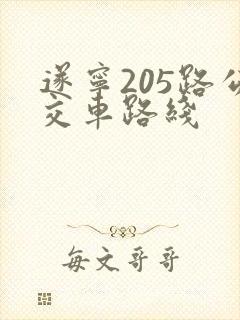 遂宁205路公
交车路线
每文哥哥